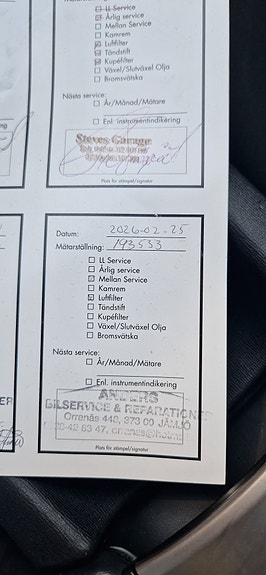 LL Service
Årlig service
Mellan Service
Kamrem
Luftfilter
Tändstift
Kupéfilter
Växel/Slutväxel Olja
Bromsvätska
Nästa service:
År/Månad/Mätare
Enl. instrumentindikering
Steves Garage
Plats för stämpel/signatur
Datum: 2026-02-25
Mätarställning: 193533
LL Service
Årlig service
Mellan Service
Kamrem
Luftfilter
Tändstift
Kupéfilter
Växel/Slutväxel Olja
Bromsvätska
Nästa service:
År/Månad/Mätare
Enl. instrumentindikering
ANDERS
BILSERVICE & REPARATIONER
Orrenäs 449, 373 00 JÄMJÖ
Plats för stämpel/signatur